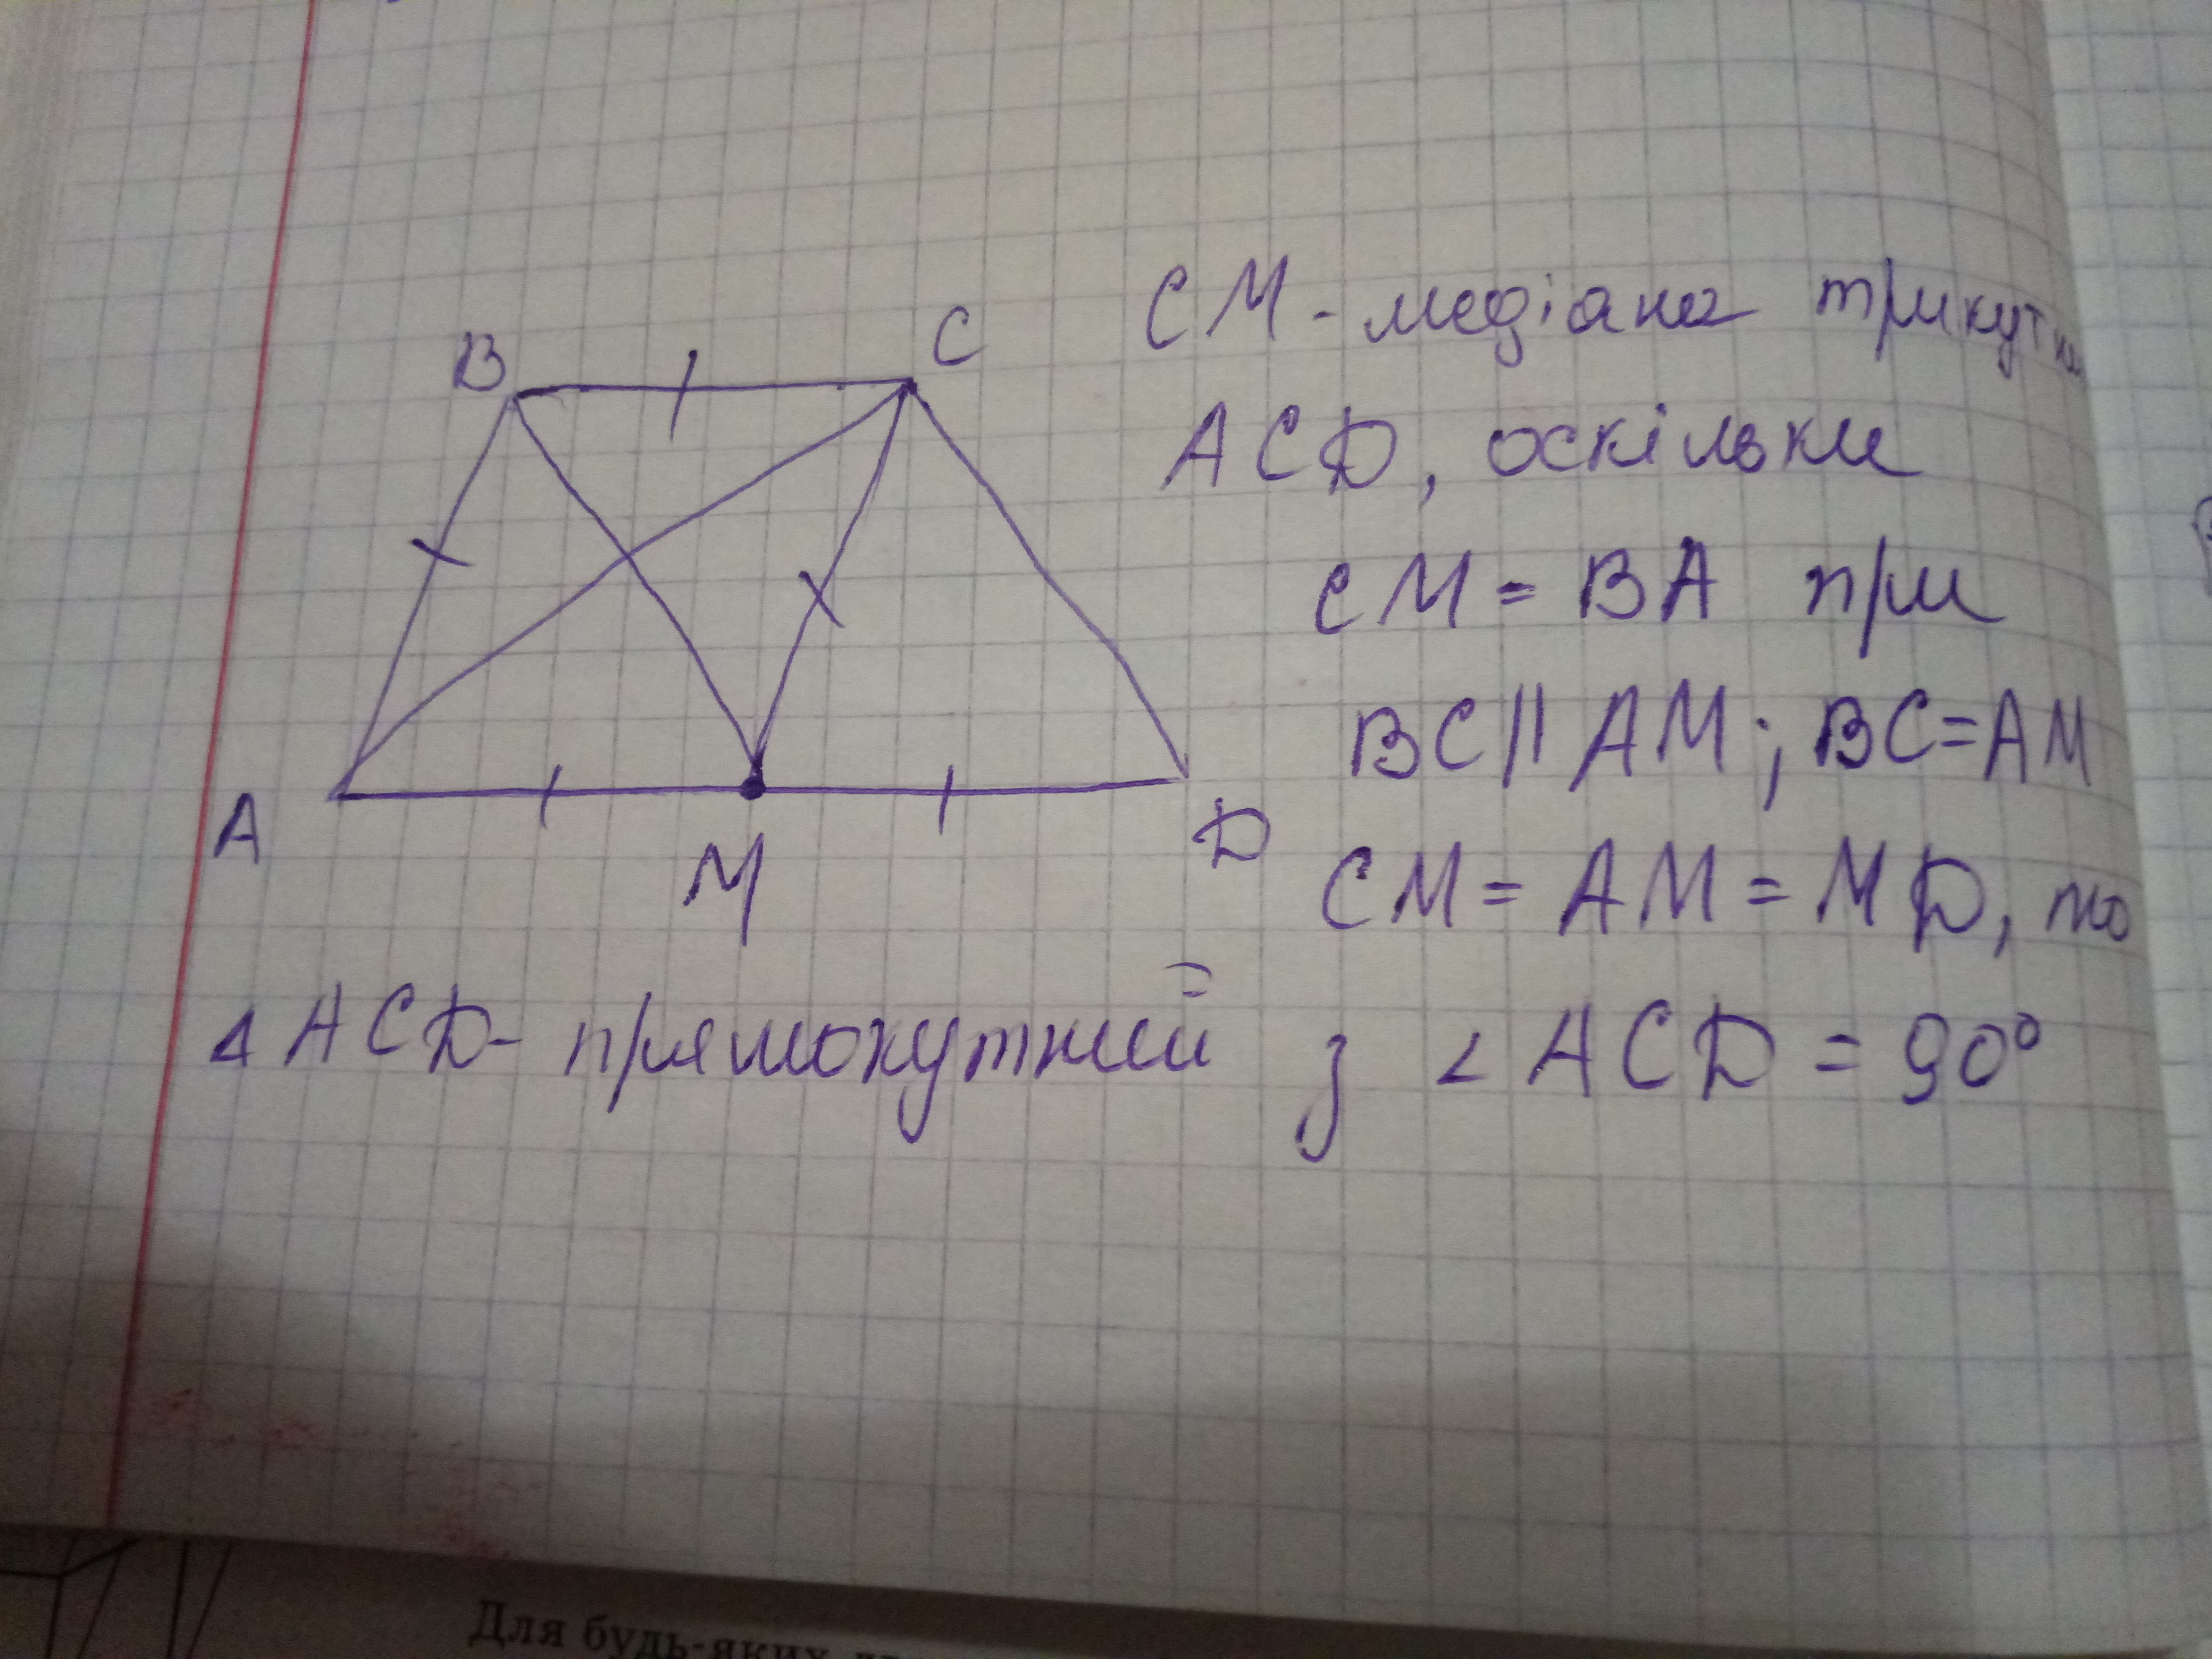 B
C
A
M
D
СМ - медіана трикутни
ACD, оскільки
СМ = ВА при
BC || AM ; BC = AM
CM = AM = MD, то
△ ACD - прямокутний з ∠ ACD = 90°
Для будь-яких